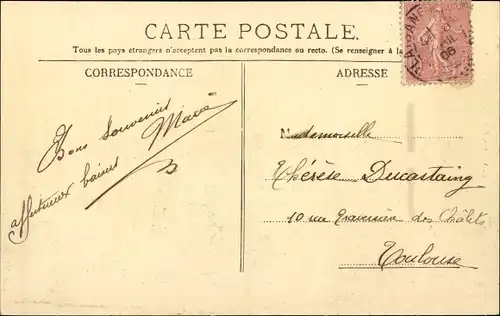 CARTE POSTALE.
Tous les pays étrangers n'acceptent pas la correspondance au recto. (Se renseigner à la
CORRESPONDANCE
ADRESSE
Bons souvenirs
affectueux baisers
Marie
Mademoiselle
Thérèse Ducastaing
10 rue Traversière des Châlets
Toulouse
06